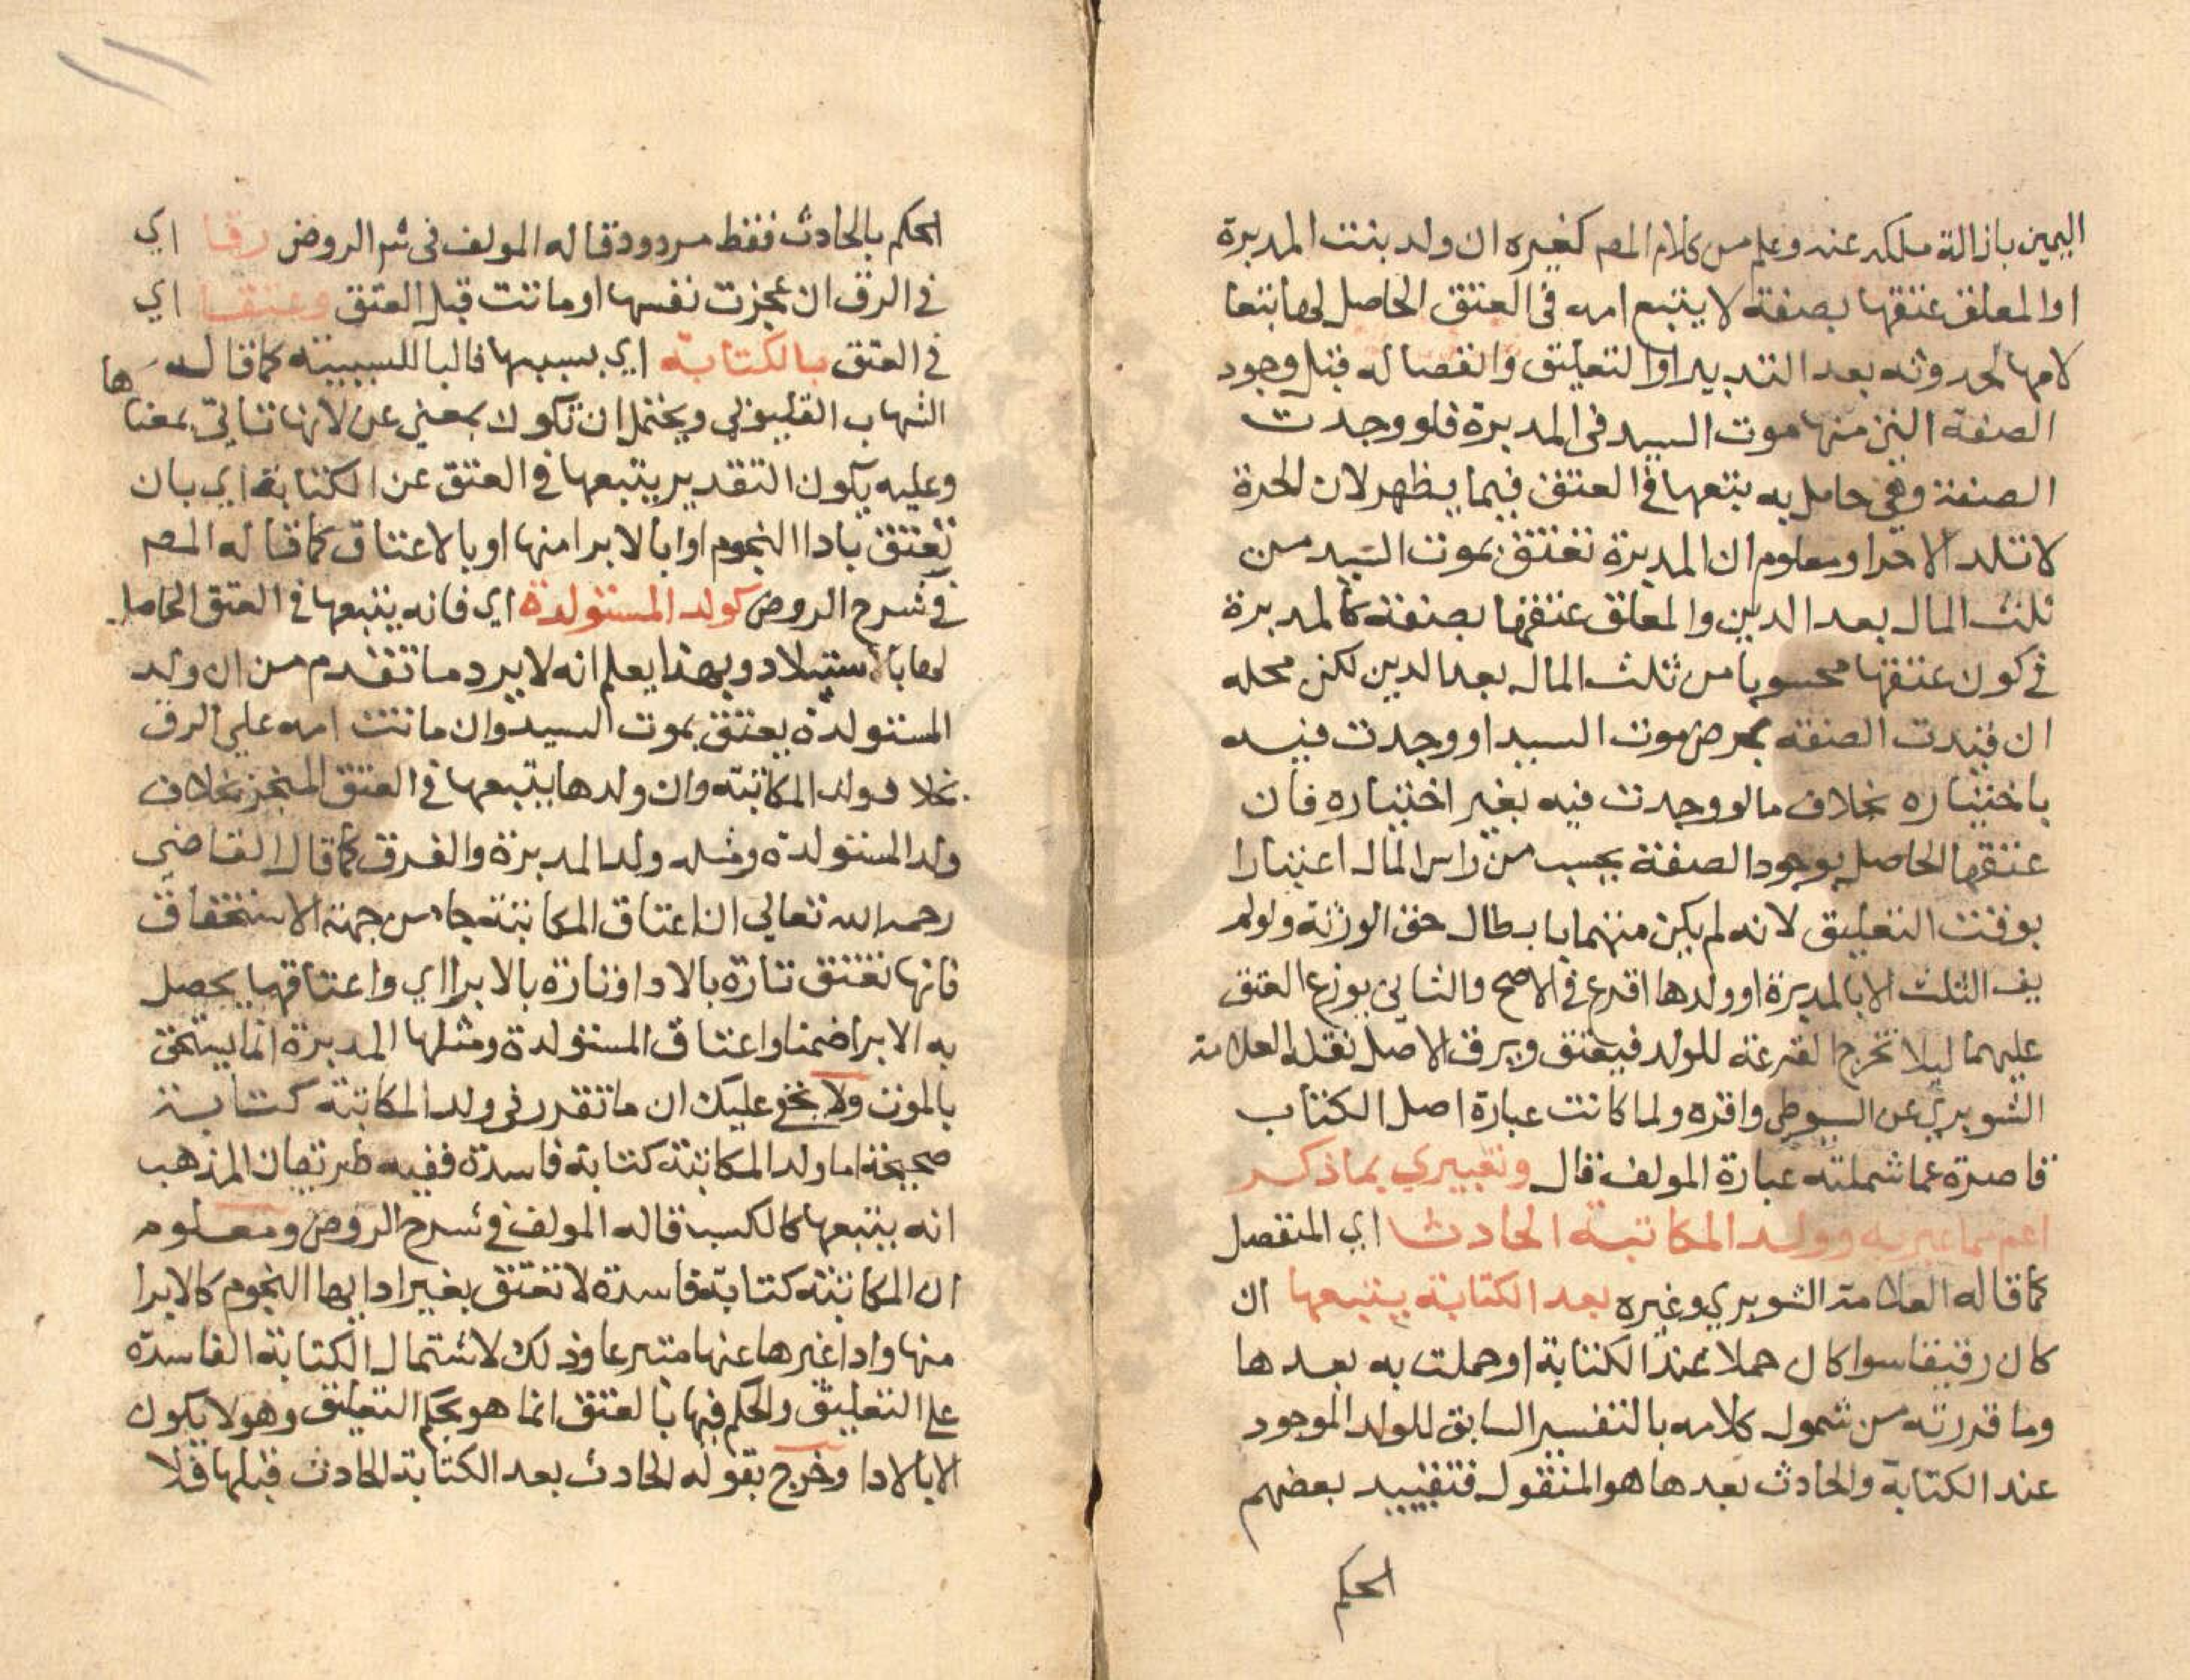 اليمين بازالة ملكه عنه وعلم من كلام المص كغيره ان ولد بنت المدبرة
او المعلق عتقها بصفة لا يتبع امه في العتق الحاصل لها تبعا
لامها لحدوثه بعد التدبير او التعليق وانفصاله قبل وجود
الصفة التي منها موت السيد في المدبرة فلو وجدت
الصفة وهي حامل به تبعها في العتق فيما يظهر لان الحرة
لا تلد الا حرا ومعلوم ان المدبرة تعتق بموت السيد من
ثلث المال بعد الدين والمعلق عتقها بصفة كالمدبرة
في كون عتقها محسوبا من ثلث المال بعد الدين لكن محله
ان قيدت الصفة بمرض موت السيد او وجدت فيه
باختياره بخلاف ما لو وجدت فيه بغير اختياره فان
عتقها الحاصل بوجود الصفة يحسب من راس المال اعتبارا
بوقت التعليق لانه لم يكن متهما بابطال حق الورثة ولو لم
يف الثلث الا بالمدبرة او ولدها اقرع في الاصح والثاني يوزع العتق
عليهما ليلا تخرج القرعة للولد فيعتق ويرق الاصل نقله العلامة
الشوبري عن السيوطي واقره ولما كانت عبارة اصل الكتاب
قاصرة عما شملته عبارة المولف قال وتعبيري بما ذكر
اعم مما عبر به وولد المكاتبة الحادث اي المنفصل
كما قاله العلامة الشوبري وغيره بعد الكتابة يتبعها ان
كان رقيقا سوا كان حملا عند الكتابة او حملت به بعدها
وما قررته من شمول كلامه بالتفسير السابق للولد الموجود
عند الكتابة والحادث بعدها هو المنقول فتقييد بعضهم
الحكم
الحكم بالحادث فقط مردود قاله المولف في شر الروض رقا اي
في الرق ان عجزت نفسها او ماتت قبل العتق وعتقا اي
في العتق بالكتابة اي بسببها فالبا للسببية كما قاله
الشهاب القليوبي ويحتمل ان تكون بمعني عن لانها تاتي بمعناها
وعليه يكون التقدير يتبعها في العتق عن الكتابة اي بان
تعتق بادا النجوم او بالابرا منها او بالاعتاق كما قاله المص
في شرح الروض كولد المستولدة اي فانه يتبعها في العتق الحاصل
لها بالاستيلاد وبهذا يعلم انه لا يرد ما تقدم من ان ولد
المستولدة يعتق بموت السيد وان ماتت امه علي الرق
بخلاف ولد المكاتبة وان ولدها يتبعها في العتق المنجز بخلاف
ولد المستولدة ومثله ولد المدبرة والفرق كما قال القاضي
رحمه الله تعالي ان اعتاق المكاتبة جا من جهة الاستحقاق
فانها تعتق تارة بالادا وتارة بالابرا اي واعتاقها يحصل
به الابرا ضمنا واعتاق المستولدة ومثلها المدبرة انما يستحق
بالموت ولا يخفي عليك ان ما تقدر في ولد المكاتبة كتابة
صحيحة اما ولد المكاتبة كتابة فاسدة ففيه طريقان المذهب
انه يتبعها كالكسب قاله المولف في شرح الروض ومعلوم
ان المكاتبة كتابة فاسدة لا تعتق بغير ادايها النجوم كالابرا
منها وادا غيرها عنها متبرعا وذلك لاشتمال الكتابة الفاسدة
علي التعليق والحكم فيها بالعتق انما هو بحكم التعليق وهو لا يكون
الا بالادا وخرج بقوله الحادث بعد الكتابة الحادث قبلها فلا